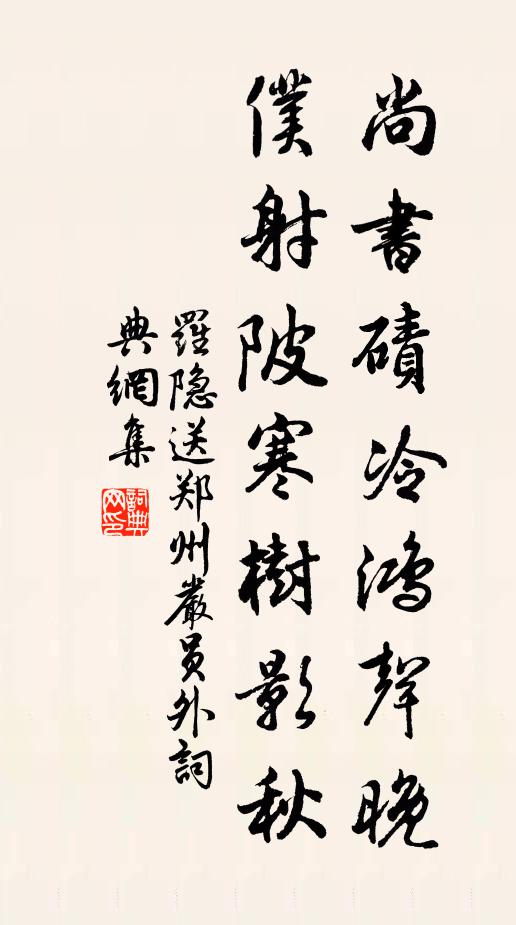 尚書磧冷鴻聲晚
僕射陂寒樹影秋
羅隐送郑州嚴員外詞
典網集
詞典
网印